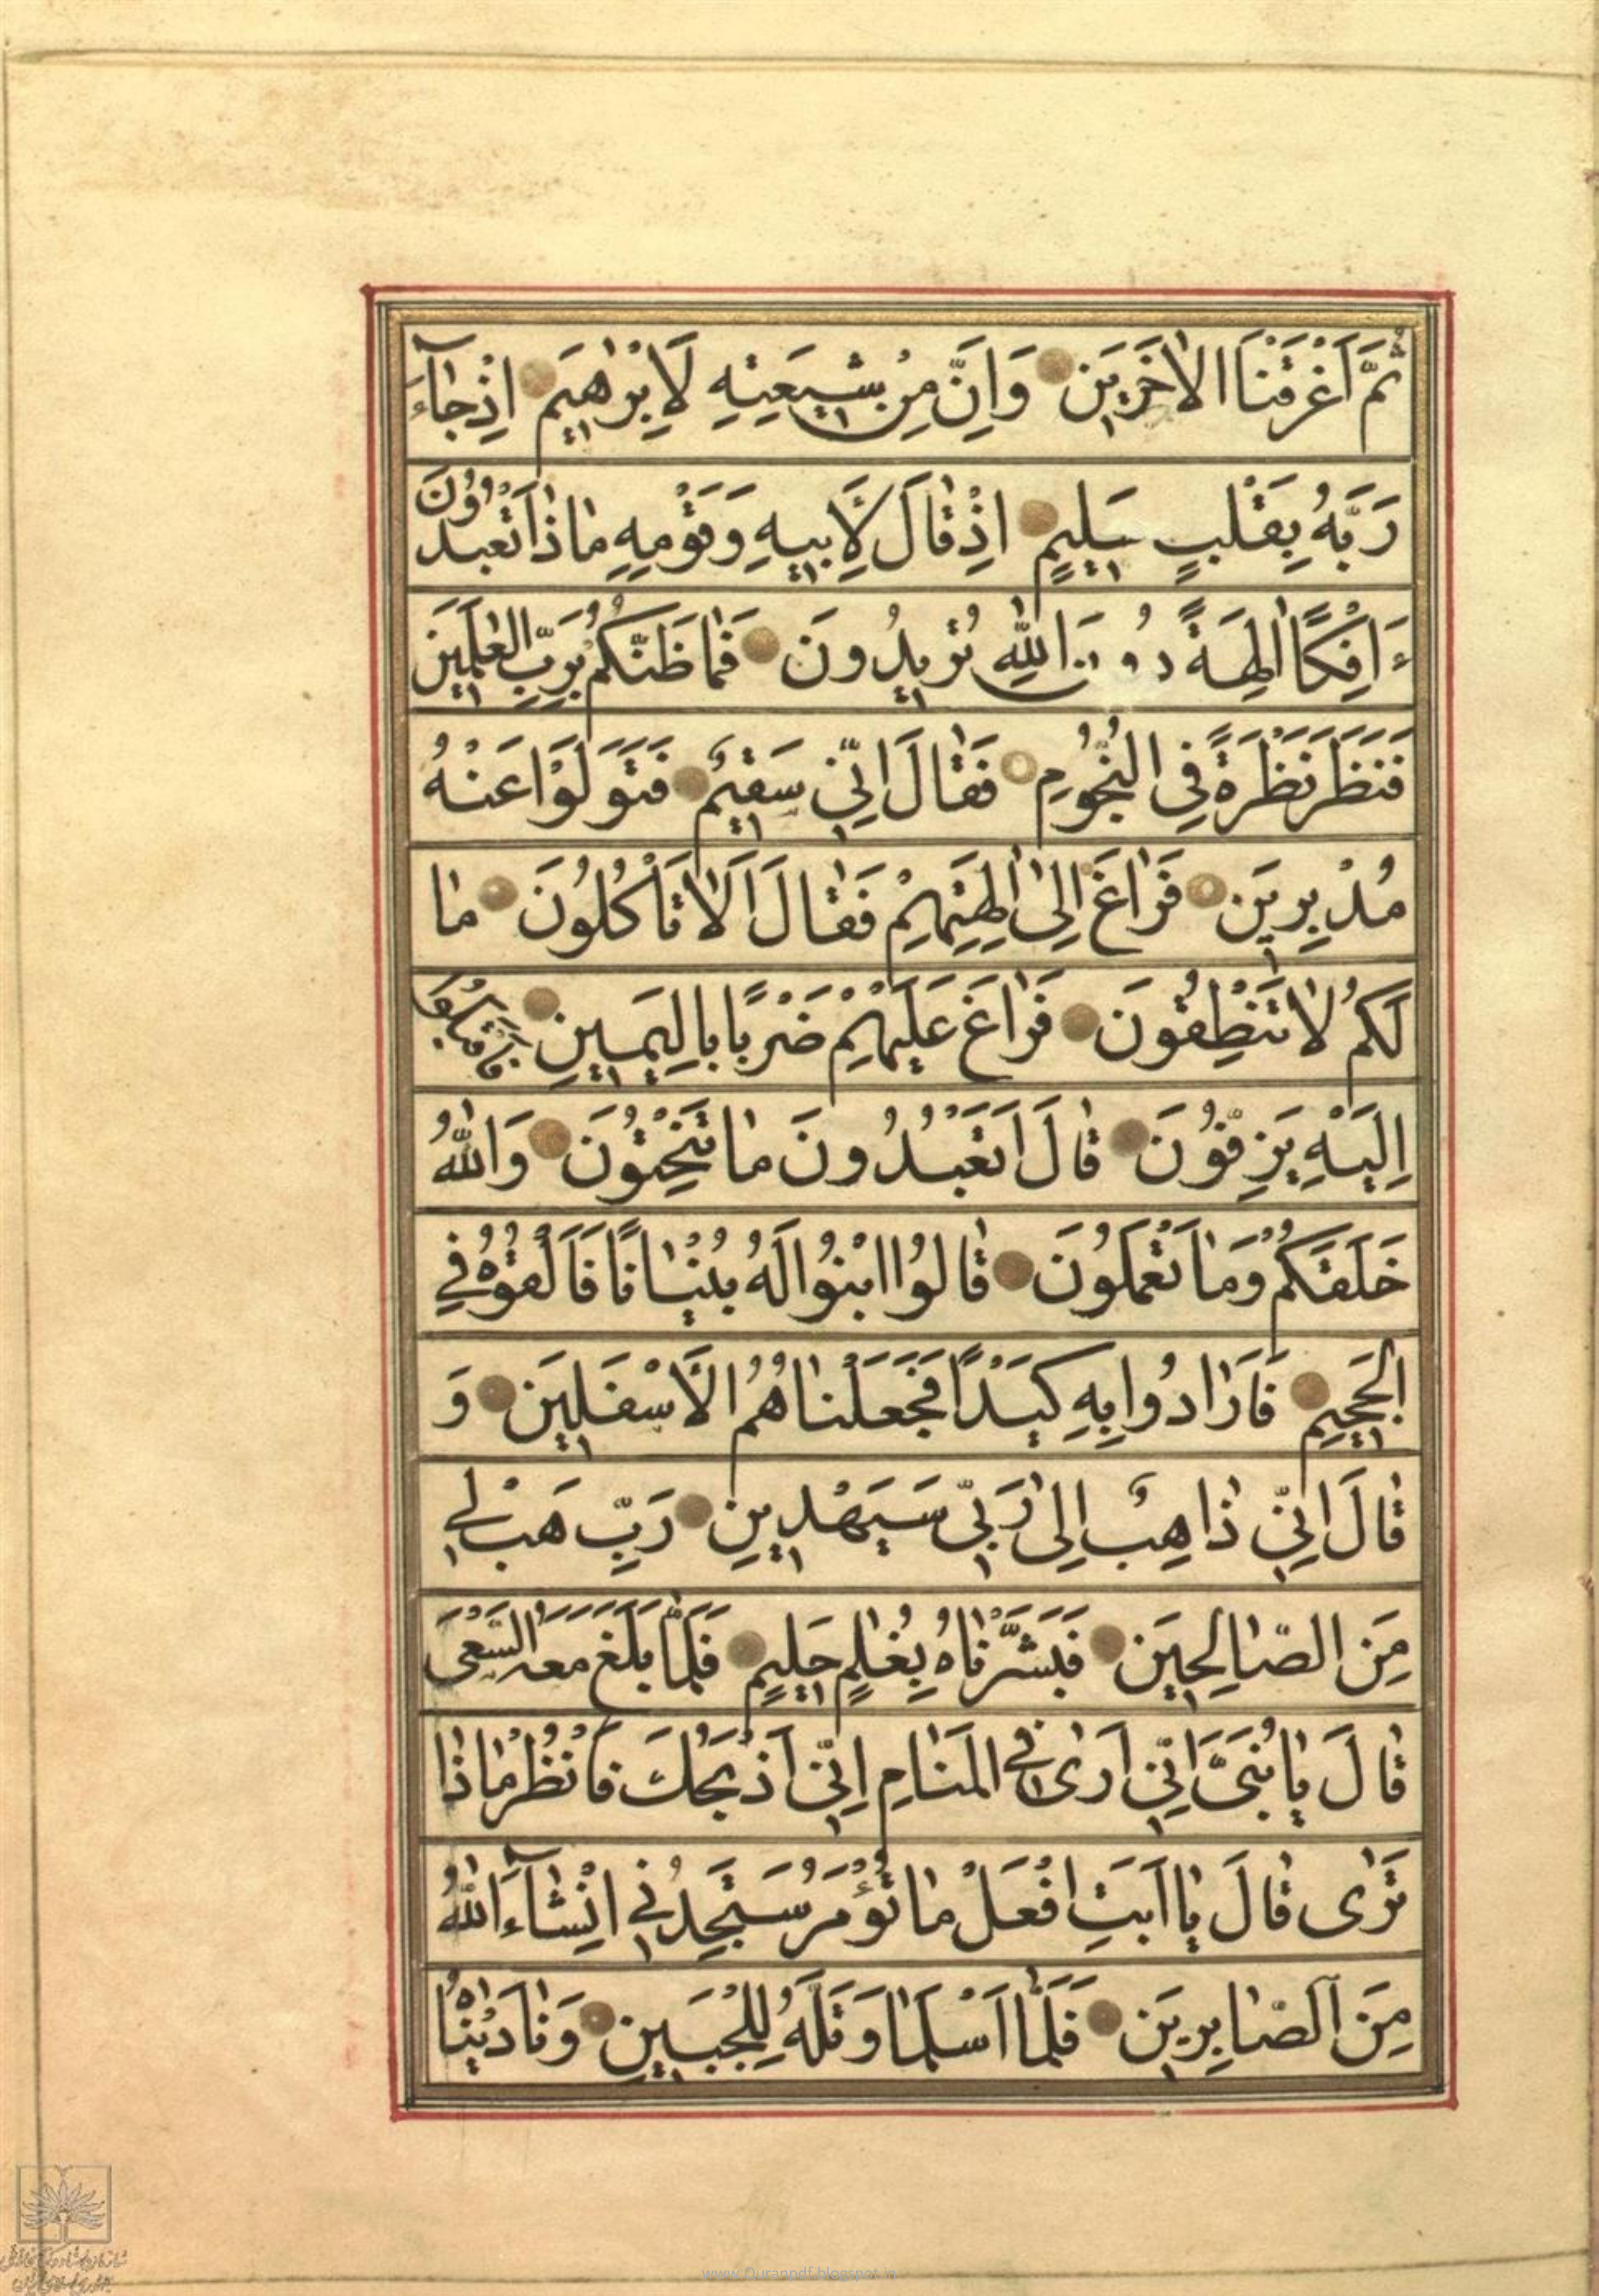 ثُمَّ اَغْرَقْنَا الْاٰخَرِيَن وَاِنَّ مِنْ شِيعَتِهِ لَاِبْرٰهِيَم اِذْ جٰاۤءَ
رَبَّهُ بِقَلْبٍ سَلِيٍم اِذْ قٰالَ لِاَبِيهِ وَقَوْمِهِ مٰا ذٰا تَعْبُدُونَ
ءَاِفْكًا اٰلِهَةً دُونَ اللّٰهِ تُرِيدُونَ فَمٰا ظَنُّكُمْ بِرَبِّ الْعٰلَمِيَن
فَنَظَرَ نَظْرَةً فِي النُّجُومِ فَقٰالَ اِنِّي سَقِيمٌ فَتَوَلَّوْا عَنْهُ
مُدْبِرِيَن فَرٰاغَ اِلىٰ اٰلِهَتِهِمْ فَقٰالَ اَلٰا تَأْكُلُونَ مٰا
لَكُمْ لٰا تَنْطِقُونَ فَرٰاغَ عَلَيْهِمْ ضَرْبًا بِالْيَمِينِ فَاَقْبَلُوا
اِلَيْهِ يَزِفُّونَ قٰالَ اَتَعْبُدُونَ مٰا تَنْحِتُونَ وَاللّٰهُ
خَلَقَكُمْ وَمٰا تَعْمَلُونَ قٰالُوا ابْنُوا لَهُ بُنْيٰانًا فَاَلْقُوهُ فِي
الْجَحِيمِ فَاَرٰادُوا بِهِ كَيْدًا فَجَعَلْنٰاهُمُ الْاَسْفَلِيَن وَ
قٰالَ اِنِّي ذٰاهِبٌ اِلىٰ رَبِّي سَيَهْدِينِ رَبِّ هَبْ لِي
مِنَ الصّٰالِحِيَن فَبَشَّرْنٰاهُ بِغُلٰمٍ حَلِيمٍ فَلَمّٰا بَلَغَ مَعَهُ السَّعْىَ
قٰالَ يٰا بُنَىَّ اِنِّي اَرٰى فِي الْمَنٰامِ اِنِّي اَذْبَحُكَ فَانْظُرْ مٰا ذٰا
تَرٰى قٰالَ يٰا اَبَتِ افْعَلْ مٰا تُؤْمَرُ سَتَجِدُنِي اِنْ شٰاۤءَ اللّٰهُ
مِنَ الصّٰابِرِيَن فَلَمّٰا اَسْلَمٰا وَتَلَّهُ لِلْجَبِينِ وَنٰادَيْنٰاهُ
www.Quranpdf.blogspot.in